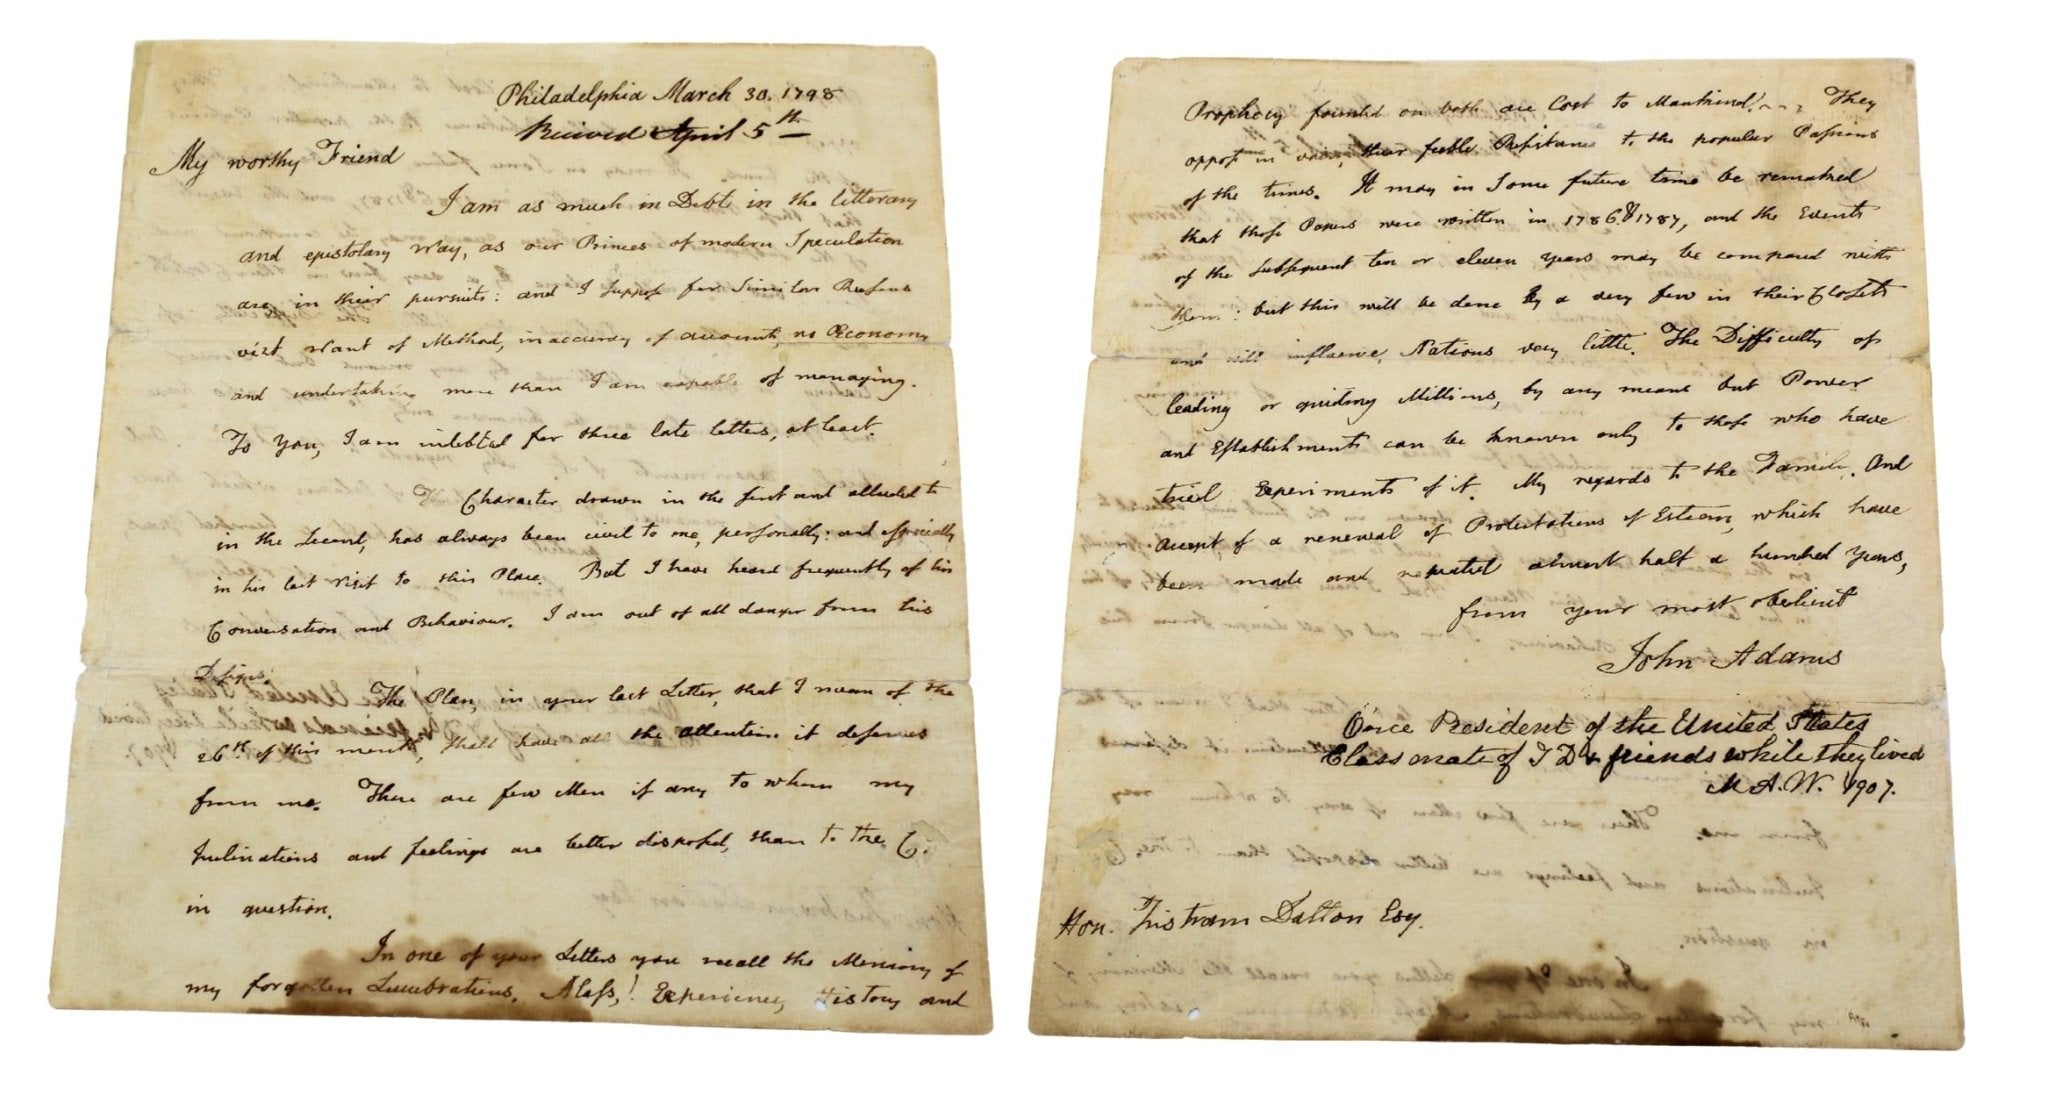 Philadelphia March 30. 1798
Received April 5th
My worthy Friend
I am as much in Debt in the litterary
and epistolary Way, as our Princes of modern Speculation
are in their pursuits: and I suppose for Similar Reasons
vizt Want of Method, inaccuracy of accounts, no Œconomy
and undertaking more than I am capable of managing.
To You, I am indebted for three late letters, at least.
The Character drawn in the first and alluded to
in the Second, has always been civil to me, personally: and especially
in his last Visit to this Place. But I have heard frequently of his
Conversation and Behaviour. I am out of all danger from his
Designs.
The Plan, in your last Letter, that I mean of the
26th of this month, shall have all the attention it deserves
from me. There are few Men if any to whom my
Inclinations and feelings are better disposed, than to the C.
in question.
In one of your Letters you recall the Memory of
my forgotten Lucubrations. Alass,! Experience, History and
Prophecy founded on both are Lost to Mankind! They
oppose in vain, their feeble Resistance to the popular Passions
of the times. It may in Some future time be remarked
that those Papers were written in 1786 & 1787, and the Events
of the Subsequent ten or eleven years may be compared with
them: but this will be done by a very few in their Closets
and will influence Nations very little. The Difficulty of
leading or guiding Millions, by any means but Power
and Establishments can be known only to those who have
tried Experiments of it. My regards to the Family. And
accept of a renewal of Protestations of Esteem, which have
been made and repeated almost half a hundred Years,
from your most obedient
John Adams
Once President of the United States
Classmate of T D & friends while they lived
M. A. W. 1907.
Hon. Tristram Dalton Esq.